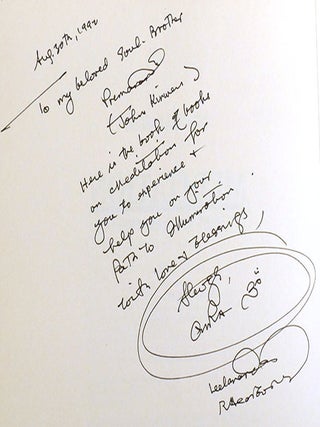 Aug 30th, 1992
To my beloved Soul-Brother
Premananda
(John Kirwens)
Here is the book of books
on meditation for
you to experience +
help you on your
Path To Illumination.
with Love & Blessings,